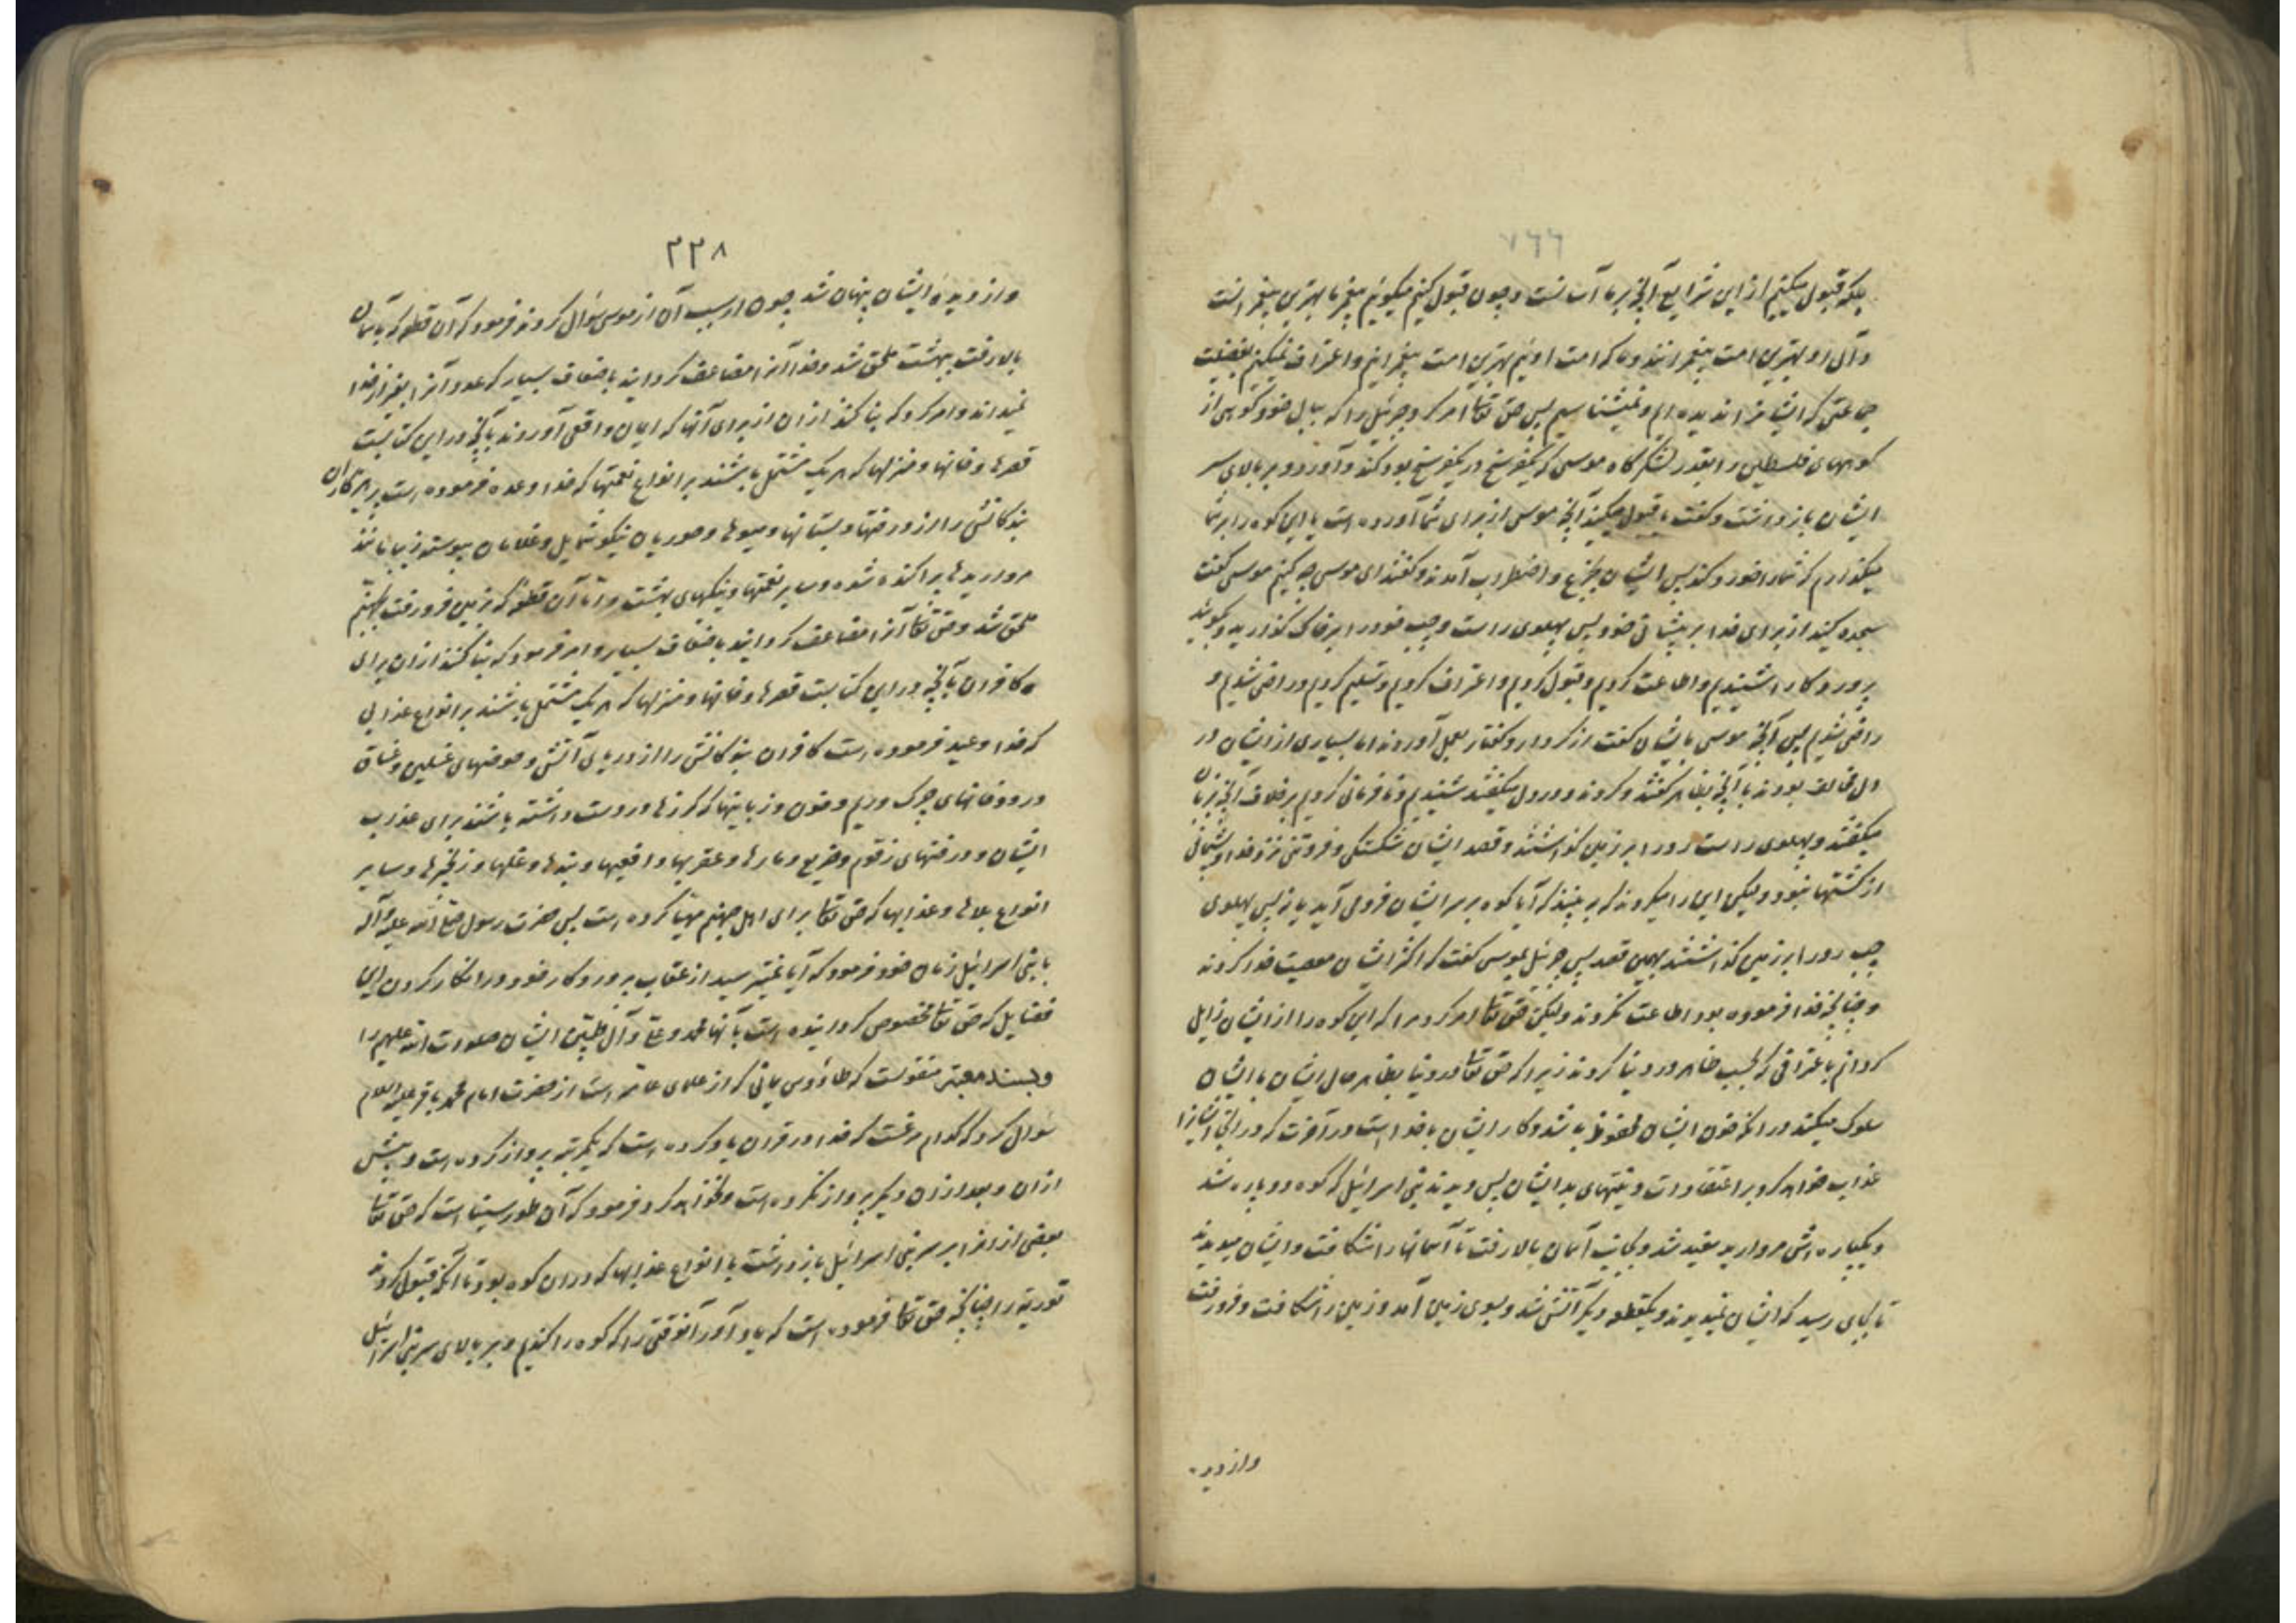 ۷۶۶
بلکه قبول میکنیم از این شرایع آنچه بر ما آسانست و چون قبول کنیم میگوئیم پیغمبر ما بهترین پیغمبرانست
و آل او بهترین امت پیغمبرانند و ما که امت اوئیم بهترین امت پیغمبرانیم و اعتراف نمیکنیم بفضیلت
جماعتی که ایشانرا ندیده‌ایم و نمیشناسیم پس حق تعالی امر کرد جبرئیل را که ببال خود کوهی از
کوههای فلسطین را بقدر لشکرگاه موسی که یکفرسخ در یکفرسخ بود کند و آورد و بر بالای سر
ایشان بازداشت و گفت یا قبول میکنید آنچه موسی از برای شما آورده است یا این کوه را بر شما
میگذارم که شما را خورد کند پس ایشان بجزع و اضطراب آمدند و گفتند ای موسی چه کنیم موسی گفت
سجده کنید از برای خدا بر پیشانی خود پس پهلوی راست و چپ خود را بر خاک گذارید و بگوئید
پروردگارا شنیدیم و اطاعت کردیم و قبول کردیم و اعتراف کردیم و تسلیم کردیم و راضی شدیم و
راضی شدیم پس آنچه موسی بایشان گفت از کردار و گفتار بعمل آوردند اما بسیاری از ایشان در
دل مخالف بودند با آنچه بظاهر گفتند و کردند و در دل میگفتند شنیدیم و نافرمانی کردیم بر خلاف آنچه بزبان
میگفتند و پهلوی راست رو را بر زمین گذاشتند و قصد ایشان شکستگی و فروتنی نزد خدا و پشیمانی
از گذشتها نبود ولیکن این را میکردند که ببینند که آیا کوه بر سر ایشان فرود می آید یا نه پس پهلوی
چپ رو را بر زمین گذاشتند بهمین قصد پس جبرئیل بموسی گفت که اکثر ایشان معصیت خدا کردند
و چنانچه خدا فرموده بود اطاعت نکردند ولیکن حق تعالی امر کرد مرا که این کوه را از ایشان زایل
گردانم باعترافی که بحسب ظاهر در دنیا کردند زیرا که حق تعالی در دنیا بظاهر حال ایشان با ایشان
سلوک میکند در آنکه خون ایشان محفوظ باشد و کار ایشان با خدا است در آخرت که در آنجا ایشانرا
عذاب خواهد کرد بر اعتقادات و نیتهای بد ایشان پس دیدند بنی اسرائیل که کوه دو پاره شد
و یکپاره‌اش مروارید سفید شد و بجانب آسمان بالا رفت تا آسمانها را شکافت و ایشان میدیدند
تا بجای رسید که ایشان نمیدیدند و یکقطعه دیگر آتش شد و بسوی زمین آمد و زمین را شکافت و فرو رفت
واز دیده
۲۳۸
واز دیدهٔ ایشان پنهان شد چون از سبب آن از موسی سؤال کردند فرمود که آن قطعه که بآسمان
بالا رفت ببهشت ملحق شد و خدا آنرا مضاعف گردانید باضعاف بسیار که عدد آنرا بغیر از خدا
نمیداند و امر کرد که بنا کنند از آن از برای آنها که ایمان واقعی آوردند بآنچه در این کتابست
قصرها و خانها و منزلها که هر یک مشتمل باشند بر انواع نعمتها که خدا وعده فرموده است پرهیزکاران
بندگانش را از درختها و بستانها و میوها و حوریان نیکو شمایل و غلامان پیوسته زیبا مانند
مرواریدها پراکنده شده و سایر نعمتها و نیکیهای بهشت و اما آن قطعه که بزمین فرو رفت بجهنم
ملحق شد و حق تعالی آنرا مضاعف گردانید باضعاف بسیار و امر فرمود که بنا کنند از آن برای
کافران بآنچه در این کتابست قصرها و خانها و منزلها که هر یک مشتمل باشند بر انواع عذابی
که خدا وعید فرموده است کافران بندگانش را از دریای آتش و حوضهای غسلین و غساق
و رودخانهای چرک و ریم و خون و زبانیها که گرزها در دست داشته باشند برای عذاب
ایشان و درختهای زقوم و ضریع و مارها و عقربها و افعیها و بندها و غلها و زنجیرها و سایر
انواع بلاها و عذابها که حق تعالی برای اهل جهنم مهیا کرده است پس حضرت رسول صلی الله علیه و آله
با بنی اسرائیل زمان خود فرمود که آیا نمیترسید از عقاب پروردگار خود در انکار کردن این
فضایل که حق تعالی مخصوص گردانیده است بآنها محمد و علی و آل طیبین ایشان صلوات الله علیهم را
و بسند معتبر منقولست که طاووس یمانی که از علمای عامه است از حضرت امام محمد باقر علیه السلام
سؤال کرد که کدام مرغست که خدا در قرآن یاد کرده است که یکمرتبه پرواز کرده است و پیش
از آن و بعد از آن دیگر پرواز نکرده است و نخواهد کرد فرمود که آن طور سیناست که حق تعالی
بعضی از آنرا بر سر بنی اسرائیل بازداشت با انواع عذابها که در آن کوه بود تا آنکه قبول کردند
توریة را چنانچه حق تعالی فرموده است که یاد آور آنوقتی را که کوه را کندیم و بر بالای سر بنی اسرائیل